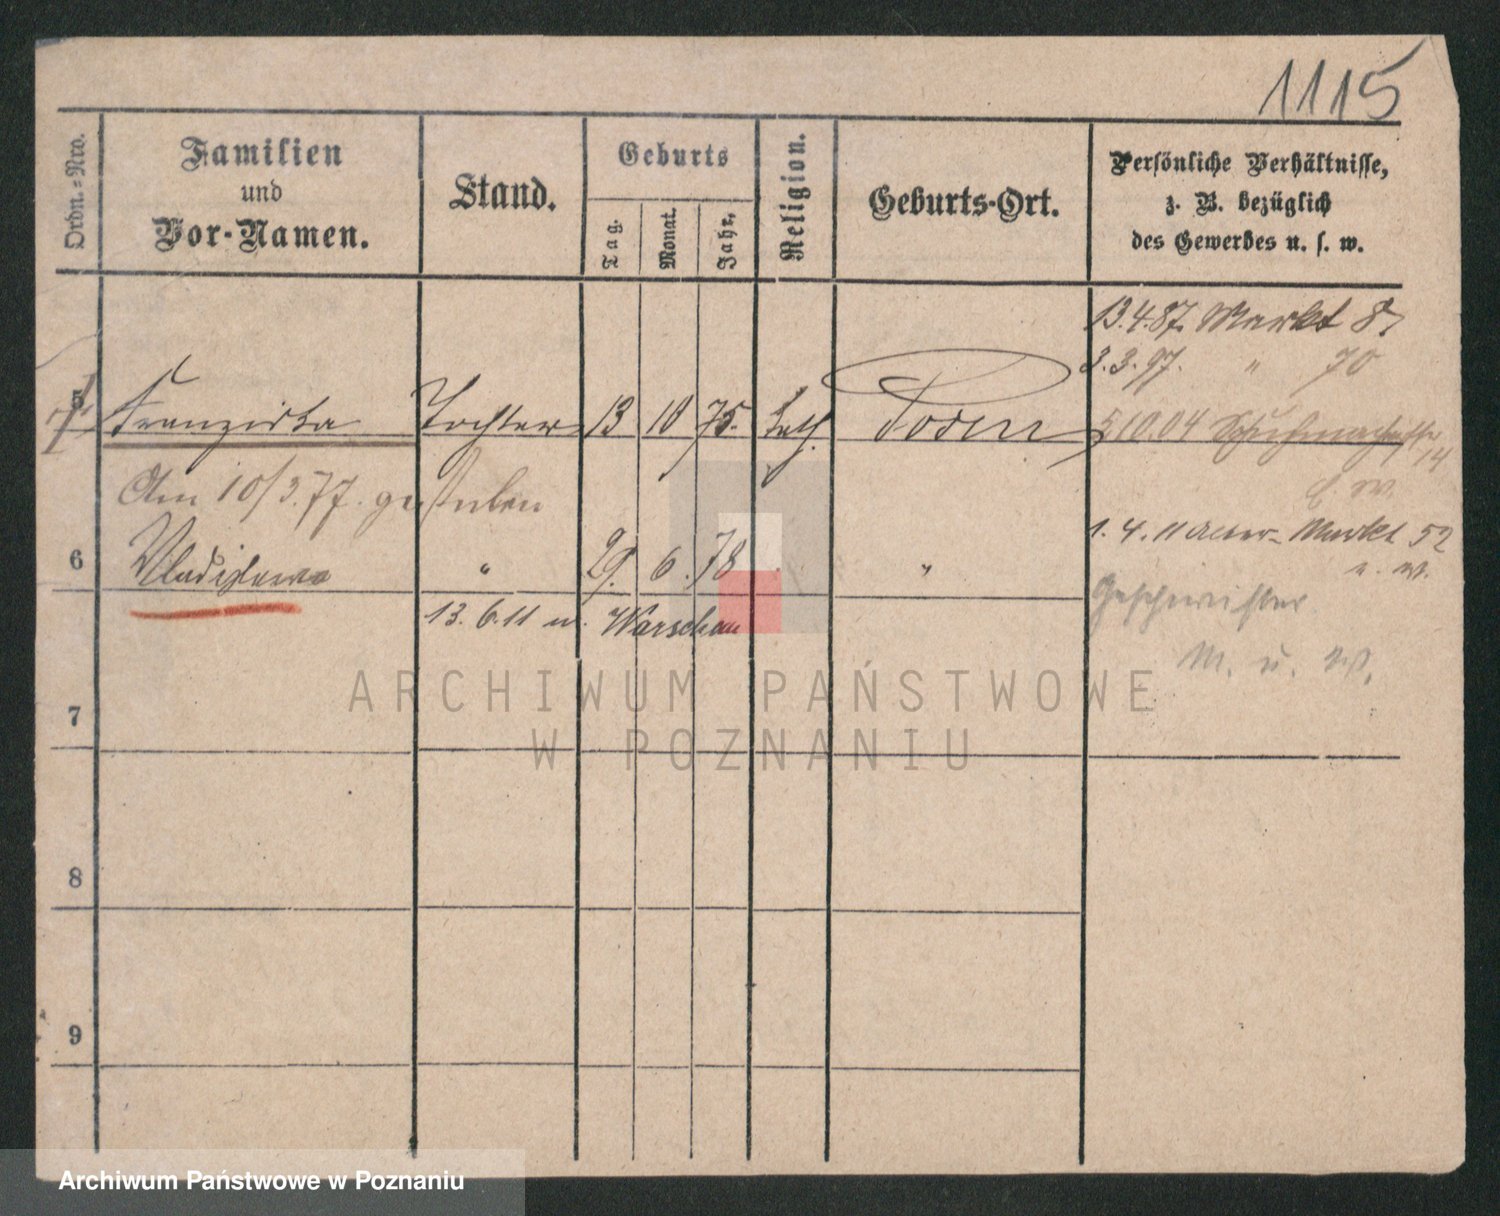 1115
Ordn.=Nro.
Familien
und
Vor-Namen.
Stand.
Geburts
Tag.
Monat.
Jahr.
Religion.
Geburts-Ort.
Persönliche Verhältnisse,
z. B. bezüglich
des Gewerbes u. s. w.
13.4.87. Markt 87
3.3.97. " 70
5 Franziska Tochter 13 10 75. kath. Posen
5.10.04 Schuhmacherstr
14
Am 10/3.77. gestorben
6 Wladislawa " 29. 6. 78 "
1. 4. 11 Alter-Markt 52
13. 6. 11 n. Warschau
Geschwister
M. u.
7
8
9
ARCHIWUM PAŃSTWOWE
W POZNANIU
Archiwum Państwowe w Poznaniu